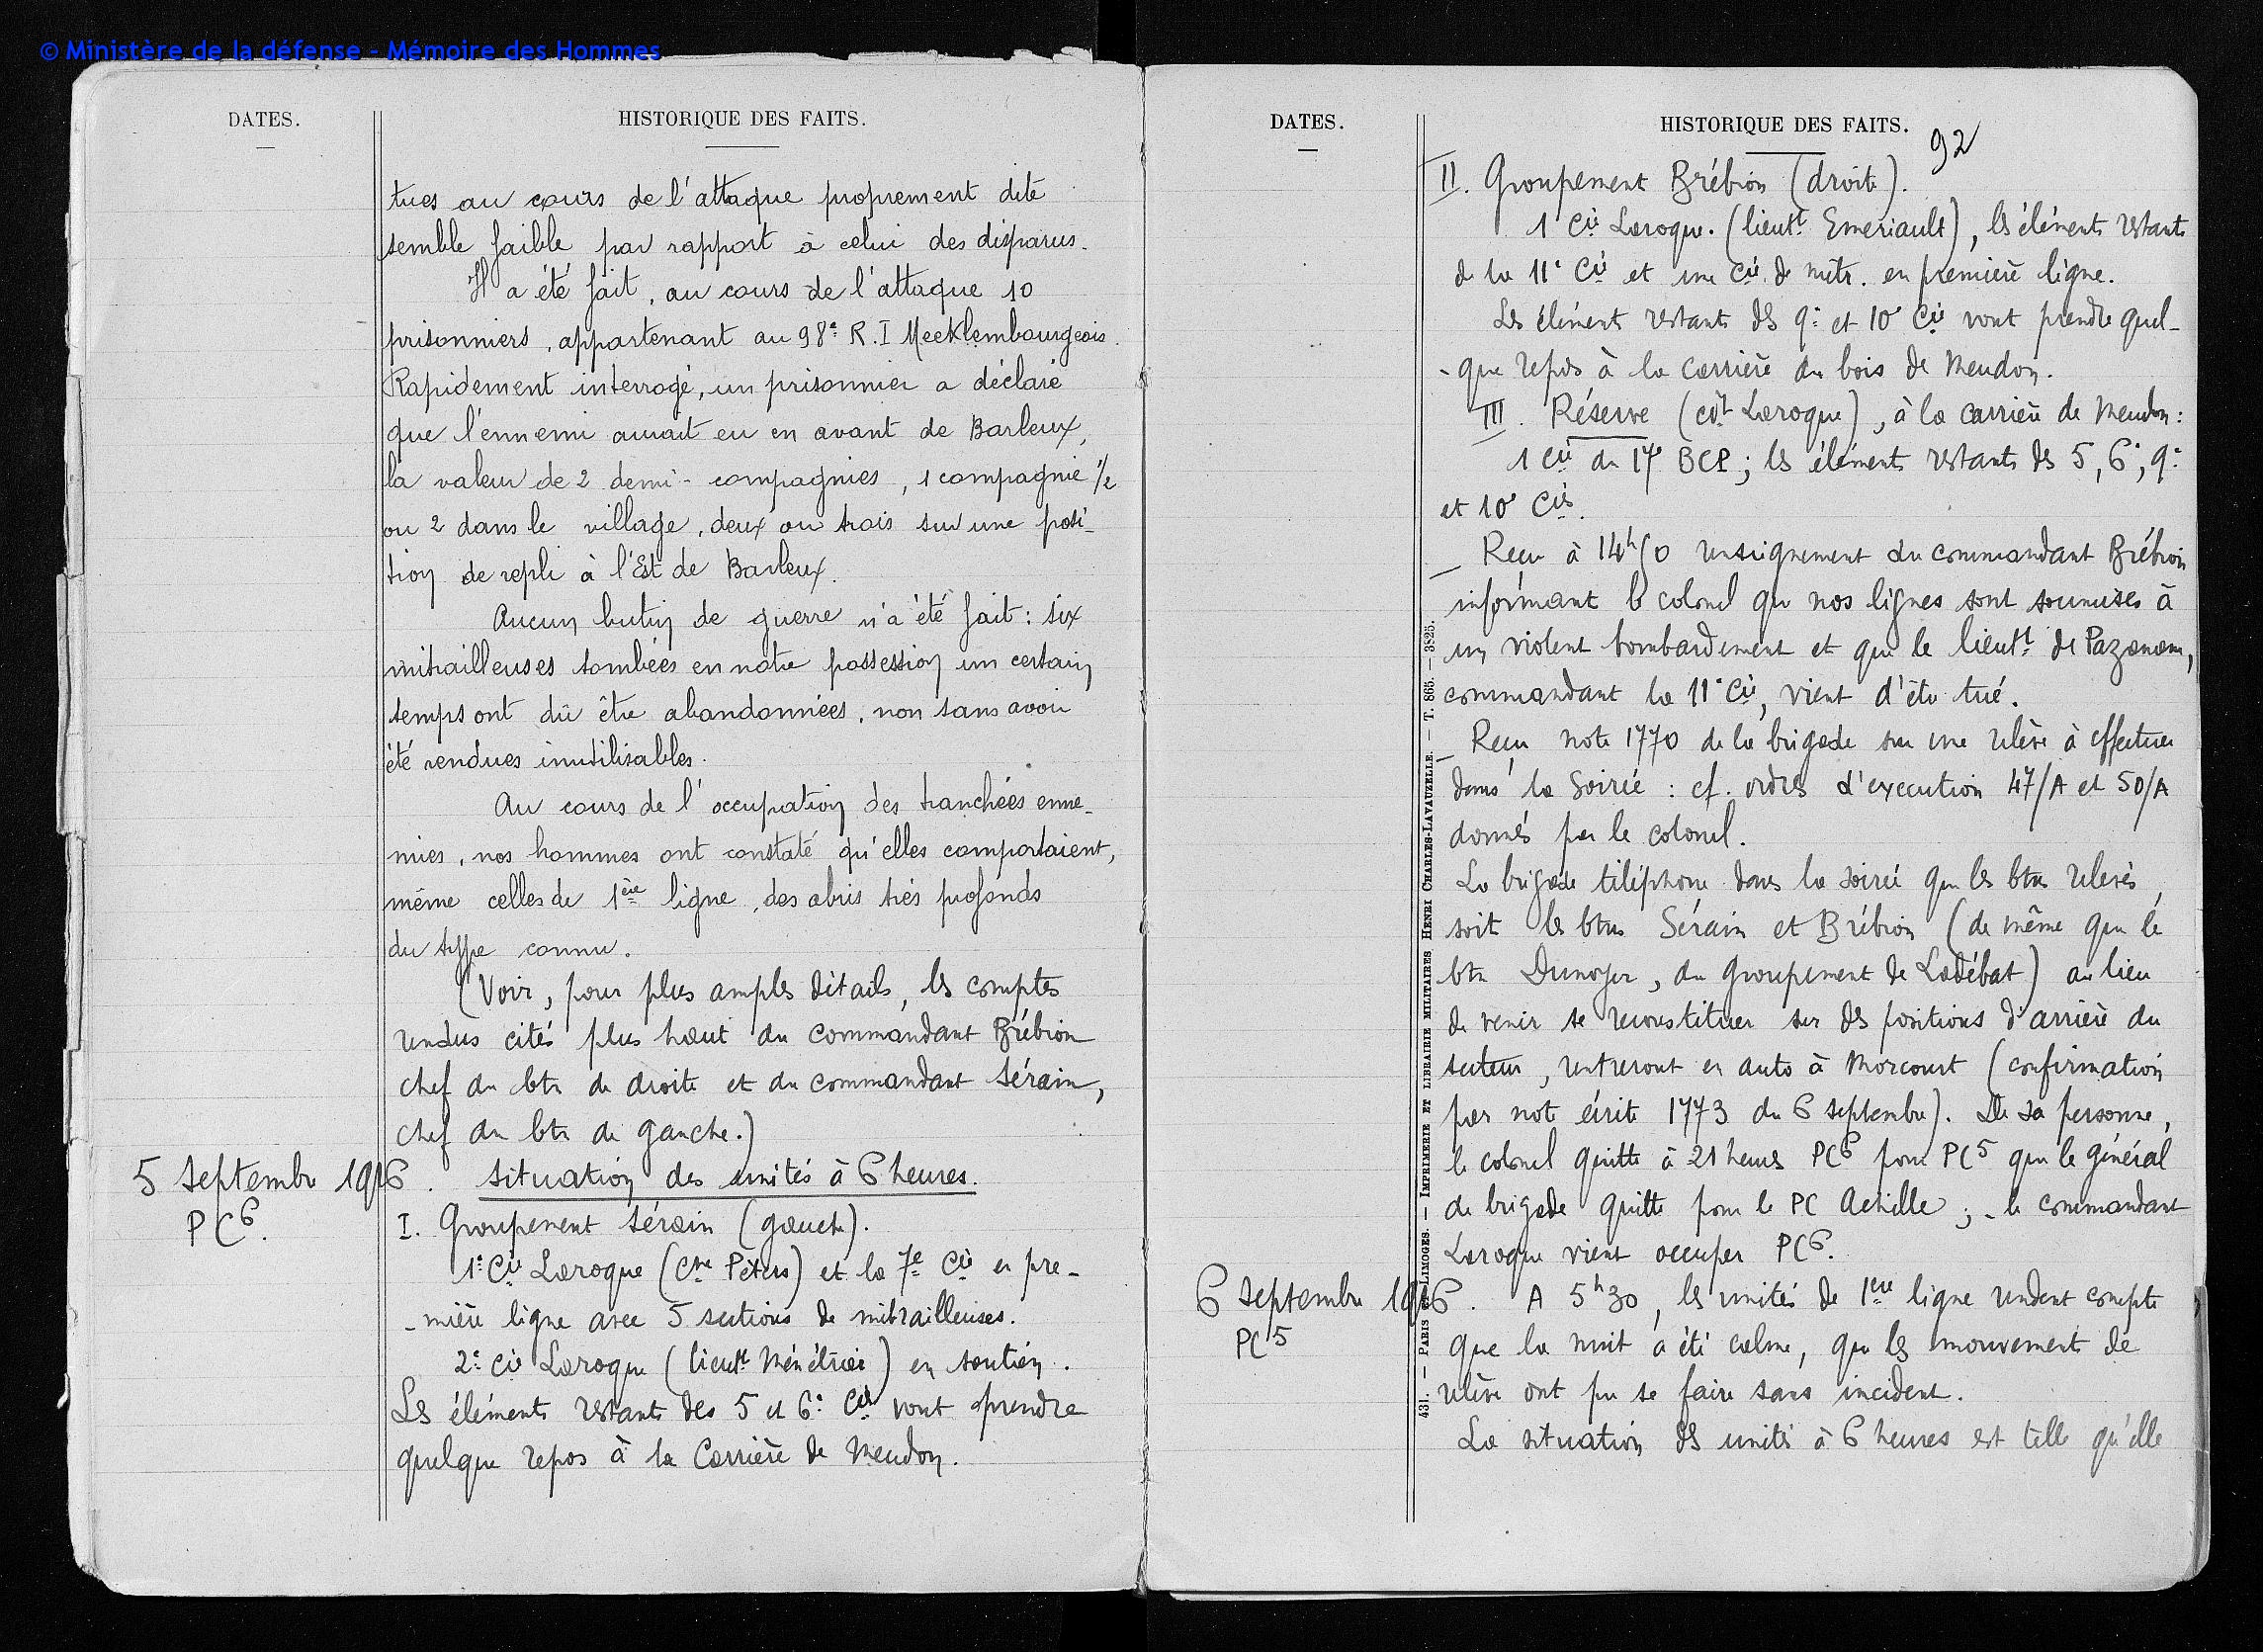 © Ministère de la défense - Mémoire des Hommes
DATES.
HISTORIQUE DES FAITS.
tués au cours de l'attaque proprement dite
semble faible par rapport à celui des disparus.
Il a été fait, au cours de l'attaque 10
prisonniers, appartenant au 98e R.I Mecklembourgeois.
Rapidement interrogé, un prisonnier a déclaré
que l'ennemi aurait eu en avant de Barleux,
la valeur de 2 demi-compagnies, 1 compagnie 1/2
ou 2 dans le village, deux ou trois sur une posi-
tion de repli à l'Est de Barleux.
Aucun butin de guerre n'a été fait : six
mitrailleuses tombées en notre possession un certain
temps ont dû être abandonnées, non sans avoir
été rendues inutilisables.
Au cours de l'occupation des tranchées enne-
mies, nos hommes ont constaté qu'elles comportaient,
même celles de 1ère ligne, des abris très profonds
du type connu.
(Voir, pour plus amples détails, les comptes
rendus cités plus haut du commandant Brébion
chef du btn de droite et du commandant Sérain,
chef du btn de gauche.)
5 septembre 1916. Situation des unités à 6 heures.
PC6.
I. Groupement Sérain (gauche).
1e Cie Laroque (Cne Péters) et la 7e Cie en pre-
-mière ligne avec 5 sections de mitrailleuses.
2e Cie Laroque (lieutt Ménétrier) en soutien.
Les éléments restants des 5 et 6e Cies vont prendre
quelque repos à la Carrière de Meudon.
DATES.
HISTORIQUE DES FAITS.
92
II. Groupement Brébion (droite).
1 Cie Laroque. (lieutt Emeriault), les éléments restants
de la 11e Cie et une Cie de mitr. en première ligne.
Les élément restants des 9e et 10e Cie vont prendre quel-
-que repos à la carrière du bois de Meudon.
III. Réserve (cdt Laroque), à la carrière de Meudon :
1 Cie du 17e BCP ; les éléments restants des 5, 6e, 9e
et 10e Cies.
_ Reçu à 14h50 renseignement du commandant Brébion
informant le colonel que nos lignes sont soumises à
un violent bombardement et que le lieutt de Pazanam,
commandant la 11e Cie, vient d'être tué.
_ Reçu note 1770 de la brigade sur une relève à effectuer
dans la soirée : cf. ordres d'exécution 47/A et 50/A
donnés par le colonel.
La brigade téléphone dans la soirée que les btns relevés,
soit les btns Sérain et Brébion (de même que le
btn Dunoyer, du groupement de Ladébat) au lieu
de venir se reconstituer sur des positions d'arrière du
secteur, rentreront en auto à Morcourt (confirmation
par note écrite 1773 du 6 septembre). De sa personne,
le colonel quitte à 21 heures PC6 pour PC5 que le général
de brigade quitte pour le PC Achille ; - le commandant
Laroque vient occuper PC6.
6 septembre 1916. A 5h30, les unités de 1ere ligne rendent compte
PC5
que la nuit a été calme, que les mouvements de
relève ont pu se faire sans incident.
La situation des unités à 6 heures est telle qu'elle
431. — PARIS ET LIMOGES. — IMPRIMERIE ET LIBRAIRIE MILITAIRES HENRI CHARLES-LAVAUZELLE. — T. 865. — 3825.